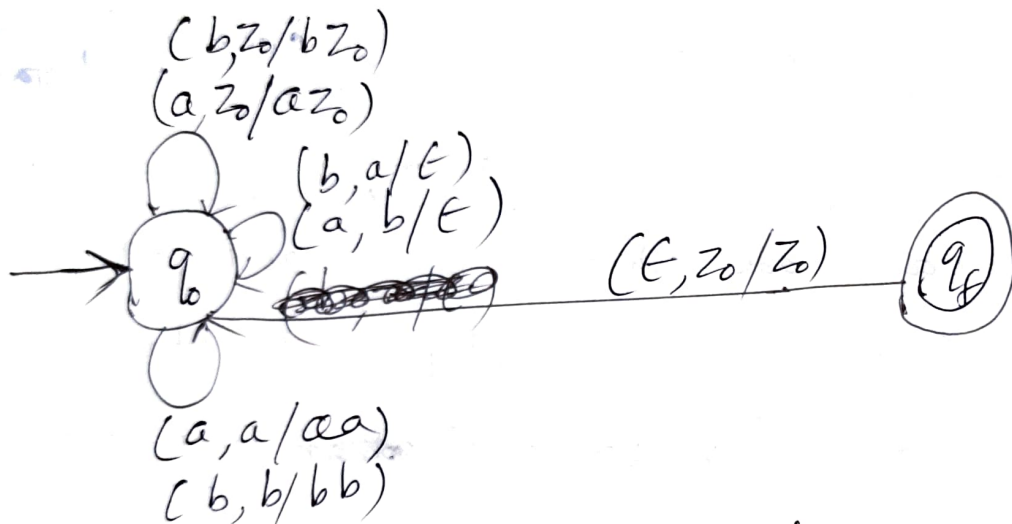 (b,Z₀/bZ₀)
(a,Z₀/aZ₀)
(b,a/ε)
(a,b/ε)
(ε,z₀/z₀)
q₀
q_f
(a,a/aa)
(b,b/bb)